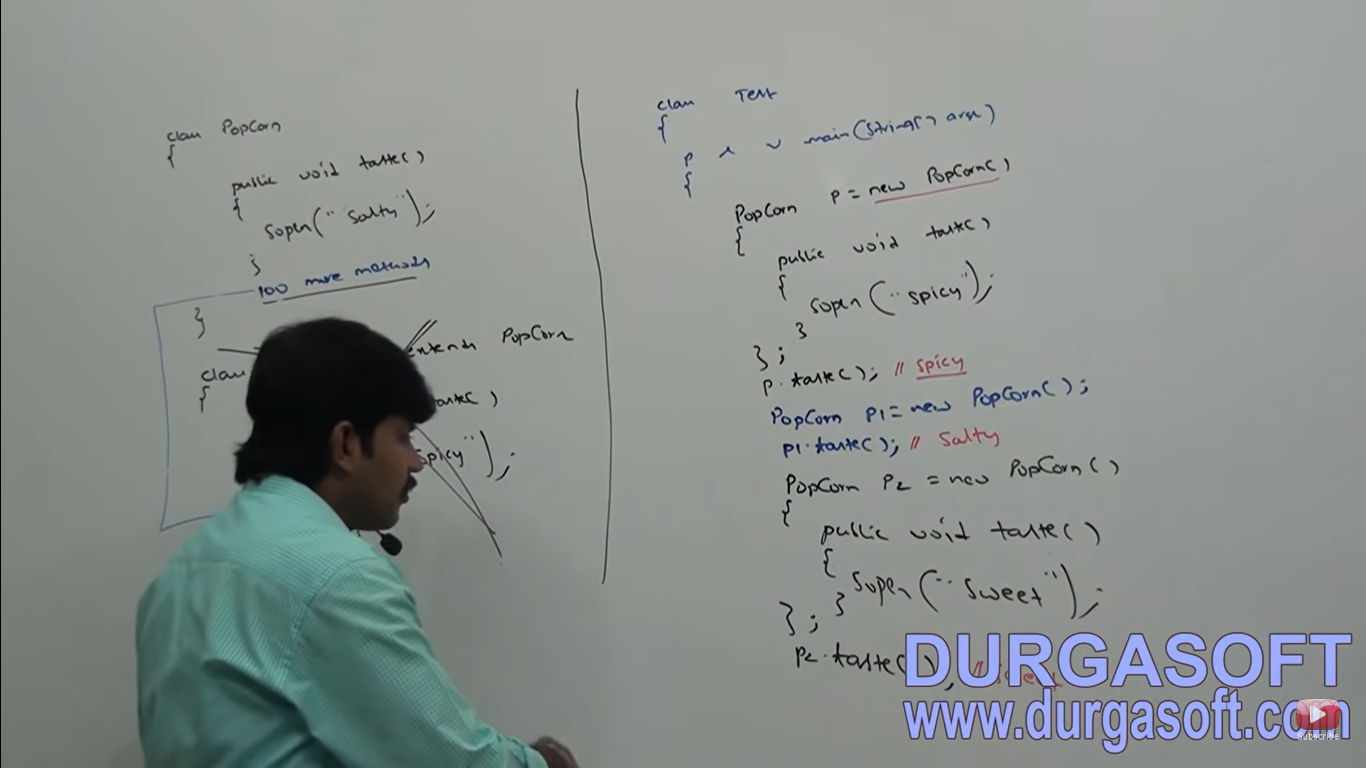 class PopCorn
{
public void taste()
{
Sopln("Salty");
}
100 more methods
}
class extends PopCorn
{
taste()
Spicy");
class Test
{
p s v main(String[] args)
{
PopCorn p = new PopCorn()
{
public void taste()
{
Sopln("Spicy");
}
};
p.taste(); // Spicy
PopCorn p1 = new PopCorn();
p1.taste(); // Salty
PopCorn p2 = new PopCorn()
{
public void taste()
{
Sopln("Sweet");
}
};
p2.taste();
DURGASOFT
www.durgasoft.com
Subscribe